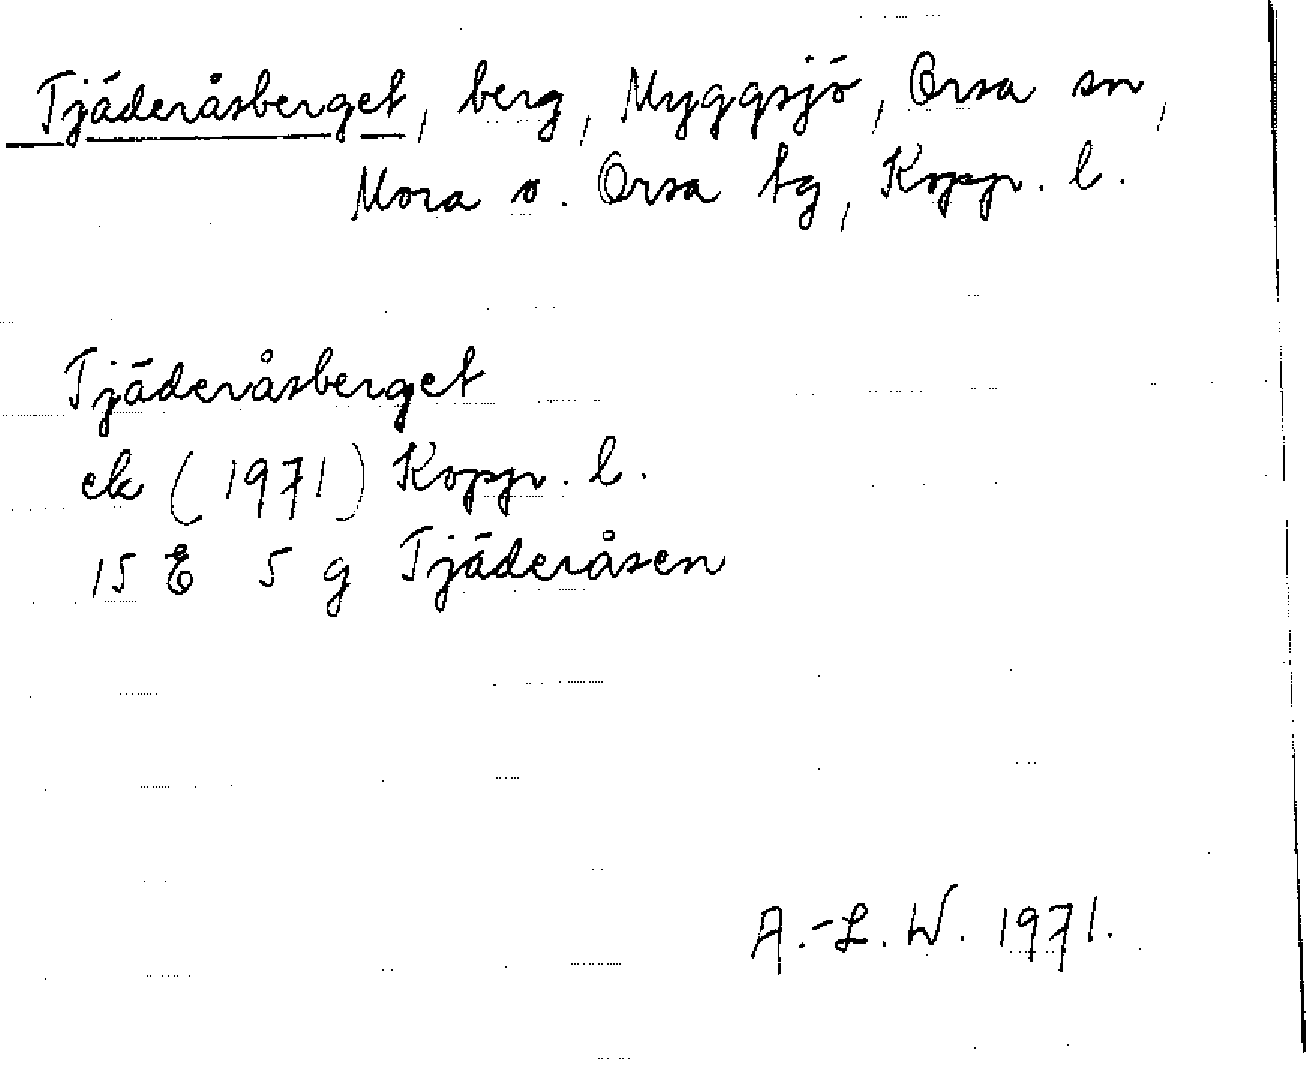 Tjäderåsberget, berg, Myggsjö, Orsa sn,
Mora o. Orsa tg, Kopp. l.
Tjäderåsberget
ek (1971) Kopp. l.
15 E 5 g Tjäderåsen
A.-L. W. 1971.